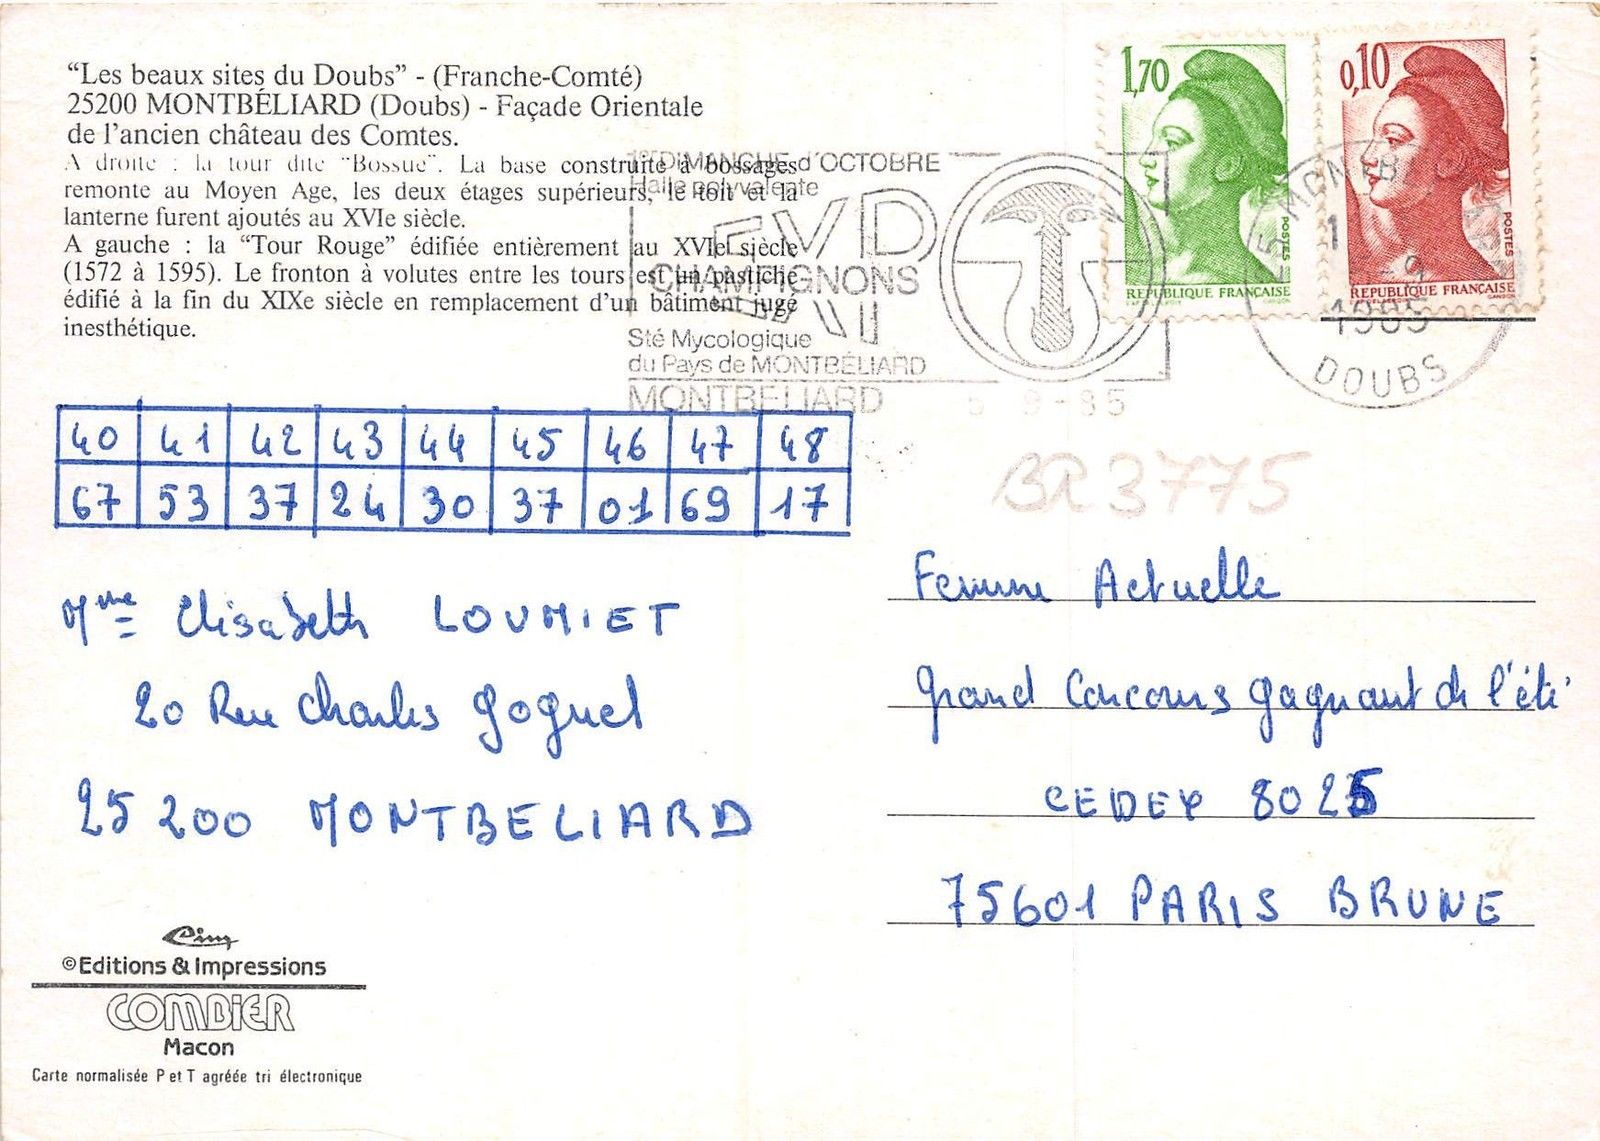 “Les beaux sites du Doubs” - (Franche-Comté)
25200 MONTBÉLIARD (Doubs) - Façade Orientale
de l’ancien château des Comtes.
A droite : la tour dite “Bossue”. La base construite à bossages
remonte au Moyen Age, les deux étages supérieurs, le toit et la
lanterne furent ajoutés au XVIe siècle.
A gauche : la “Tour Rouge” édifiée entièrement au XVIe siècle
(1572 à 1595). Le fronton à volutes entre les tours est un pastiche
édifié à la fin du XIXe siècle en remplacement d’un bâtiment jugé
inesthétique.
1er DIMANCHE d'OCTOBRE
Halle polyvalente
CHAMPIGNONS
Sté Mycologique
du Pays de MONTBÉLIARD
MONTBELIARD
1,70
POSTES
REPUBLIQUE FRANÇAISE
0,10
POSTES
REPUBLIQUE FRANÇAISE
1985
DOUBS
40 41 42 43 44 45 46 47 48
67 53 37 24 30 37 01 69 17
BR3775
Mme Elisabeth LOUMIET
20 Rue Charles Goguel
25 200 MONTBELIARD
Femme Actuelle
Grand Concours gagnant de l'été
CEDEX 8025
75601 PARIS BRUNE
Cim
©Editions & Impressions
COMBIER
Macon
Carte normalisée P et T agréée tri électronique